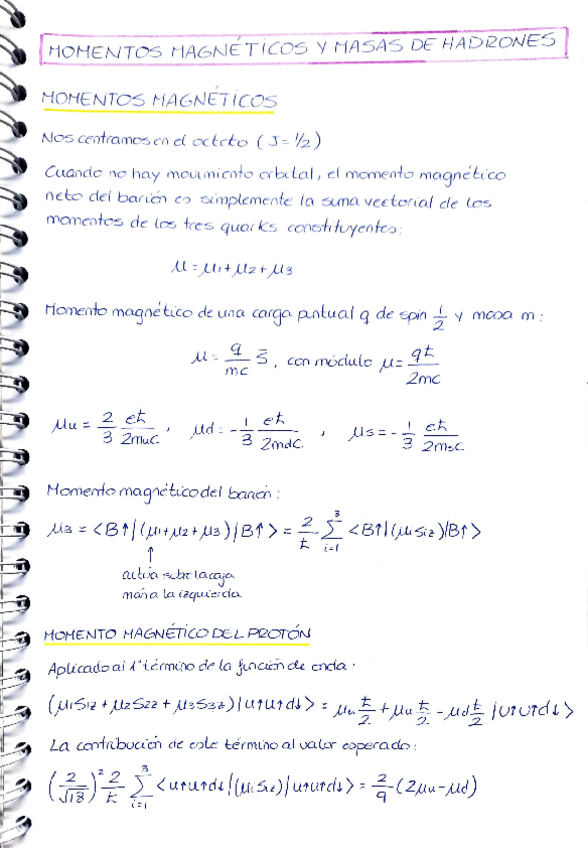 MOMENTOS MAGNÉTICOS Y MASAS DE HADRONES
MOMENTOS MAGNÉTICOS
Nos centramos en el octeto (J = 1/2)
Cuando no hay movimiento orbital, el momento magnético
neto del barión es simplemente la suma vectorial de los
momentos de los tres quarks constituyentes:
μ = μ1 + μ2 + μ3
Momento magnético de una carga puntual q de spin 1/2 y masa m:
μ = q/mc S⃗, con módulo μ = qħ/2mc
μu = 2/3 eħ/2muc , μd = -1/3 eħ/2mdc , μs = -1/3 eħ/2msc
Momento magnético del barión:
μB = <B↑|(μ1+μ2+μ3)|B↑> = 2/ħ Σ_{i=1}^{3} <B↑|(μiSiz)|B↑>
↑
actúa sobre la caja
más a la izquierda
MOMENTO MAGNÉTICO DEL PROTÓN
Aplicado al 1º término de la función de onda:
(μ1S1z + μ2S2z + μ3S3z)|u↑u↑d↓> = μu ħ/2 + μu ħ/2 - μd ħ/2 |u↑u↑d↓>
La contribución de este término al valor esperado:
(2/√18)² 2/ħ Σ_{i=1}^{3} <u↑u↑d↓|(μiSiz)|u↑u↑d↓> = 2/9 (2μu - μd)